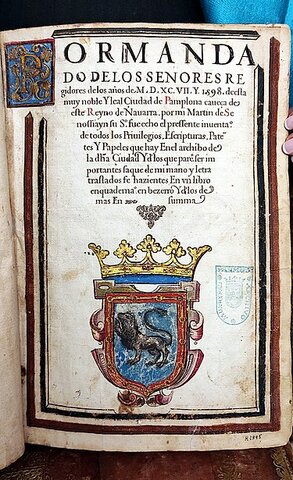 POR MANDA
DO DE LOS SENORES RE
gidores de los años de M.D.XC.VII.Y.1598.de esta
muy noble Y leal Ciudad de Pamplona caueca de
este Reyno de Nauarra, por mi Martin de Se
fue echo el pressente inuenta°
de todos los Priuilegios, Escripturas, Pate
tes Y Papeles que hay En el archibo de
la dha Ciudad Y d'los que pareser im
portantes saque de mi mano y letra
traslados fe hazientes En vn libro
enquadernaº en bezerro Y d'los de
mas En summa